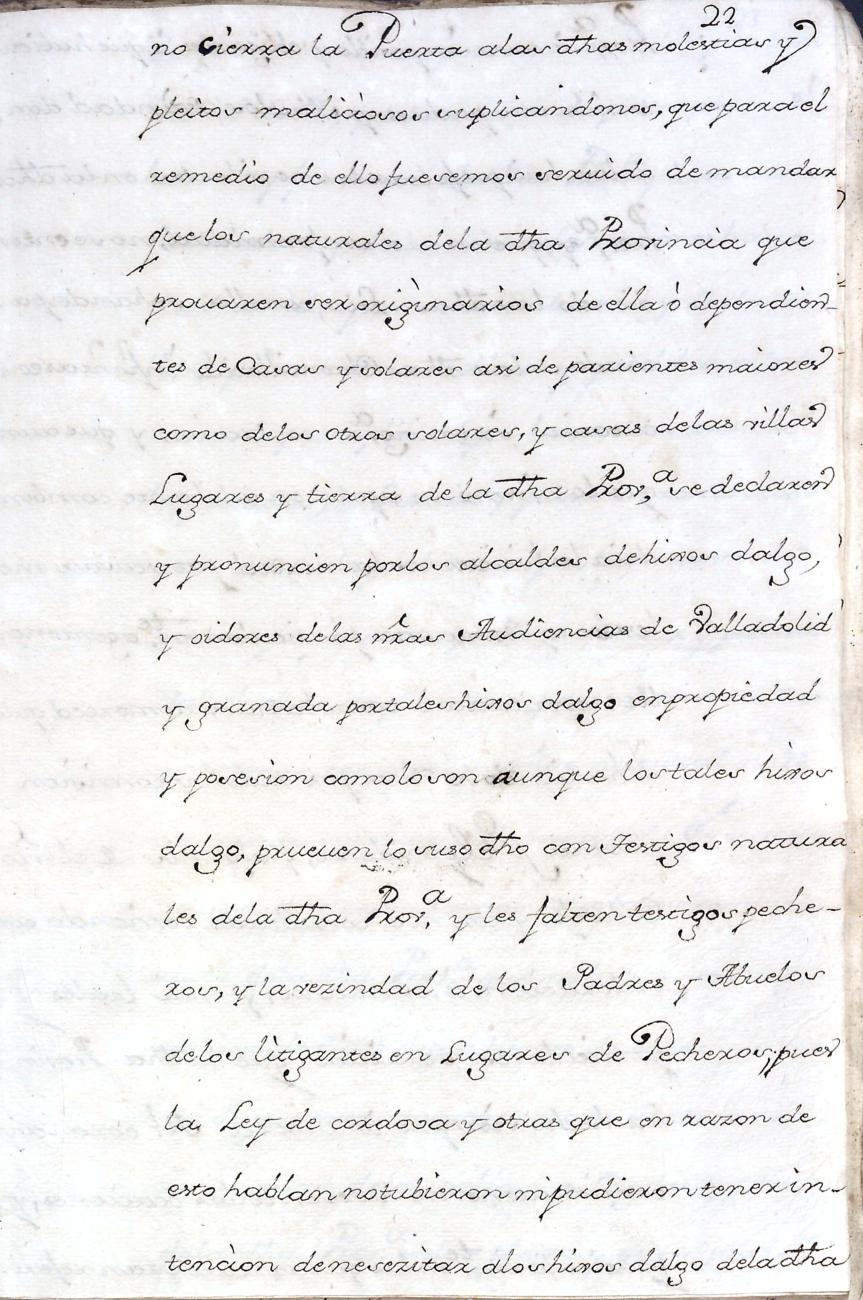 22
no cierra la Puerta alas dhas molestias y
pleitos maliciosos suplicandonos, que para el
remedio de ello fuesemos seruido de mandar
que los naturales dela dha Provincia que
prouaren ser originarios de ella ò dependien-
tes de Casas y solares asi de parientes maiores
como delos otros solares, y casas delas villas
Lugares y tierra de la dha Prov,ª se declaren
y pronuncien porlos alcaldes dehixos dalgo,
y oidores delas nr̃as Audiencias de Valladolid
y granada portaleshixos dalgo enpropiedad
y posesion comoloson aunque lostales hixos
dalgo, prueuen lo suso dho con Testigos natura
les dela dha Prov,ª y les falten testigos peche-
ros, y la vezindad de los Padres y Abuelos
delos litigantes en Lugares de Pecheros; pues
la Ley de cordova y otras que en razon de
esto hablan notubieron nipudieron tener in-
tencion denesezitar alos hixos dalgo dela dha